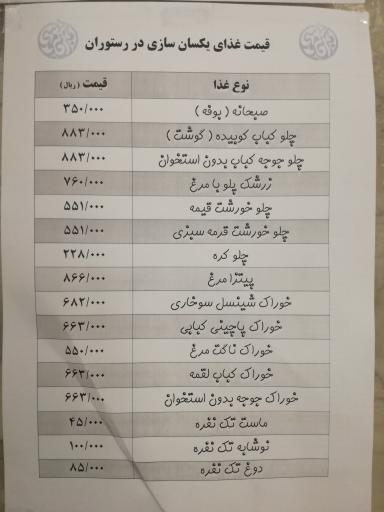 قیمت غذای یکسان سازی در رستوران
نوع غذا قیمت (ریال)
صبحانه (بوفه) ۳۵۰/۰۰۰
چلو کباب کوبیده (گوشت) ۸۸۳/۰۰۰
چلو جوجه کباب بدون استخوان ۸۸۳/۰۰۰
زرشک پلو با مرغ ۷۶۰/۰۰۰
چلو خورشت قیمه ۵۵۱/۰۰۰
چلو خورشت قرمه سبزی ۵۵۱/۰۰۰
چلو کره ۲۲۸/۰۰۰
پیتزا مرغ ۸۶۶/۰۰۰
خوراک شینسل سوخاری ۶۸۲/۰۰۰
خوراک پاچینی کبابی ۶۶۳/۰۰۰
خوراک ناگت مرغ ۵۵۰/۰۰۰
خوراک کباب لقمه ۶۶۳/۰۰۰
خوراک جوجه بدون استخوان ۶۶۳/۰۰۰
ماست تک نفره ۴۵/۰۰۰
نوشابه تک نفره ۱۰۰/۰۰۰
دوغ تک نفره ۸۵/۰۰۰